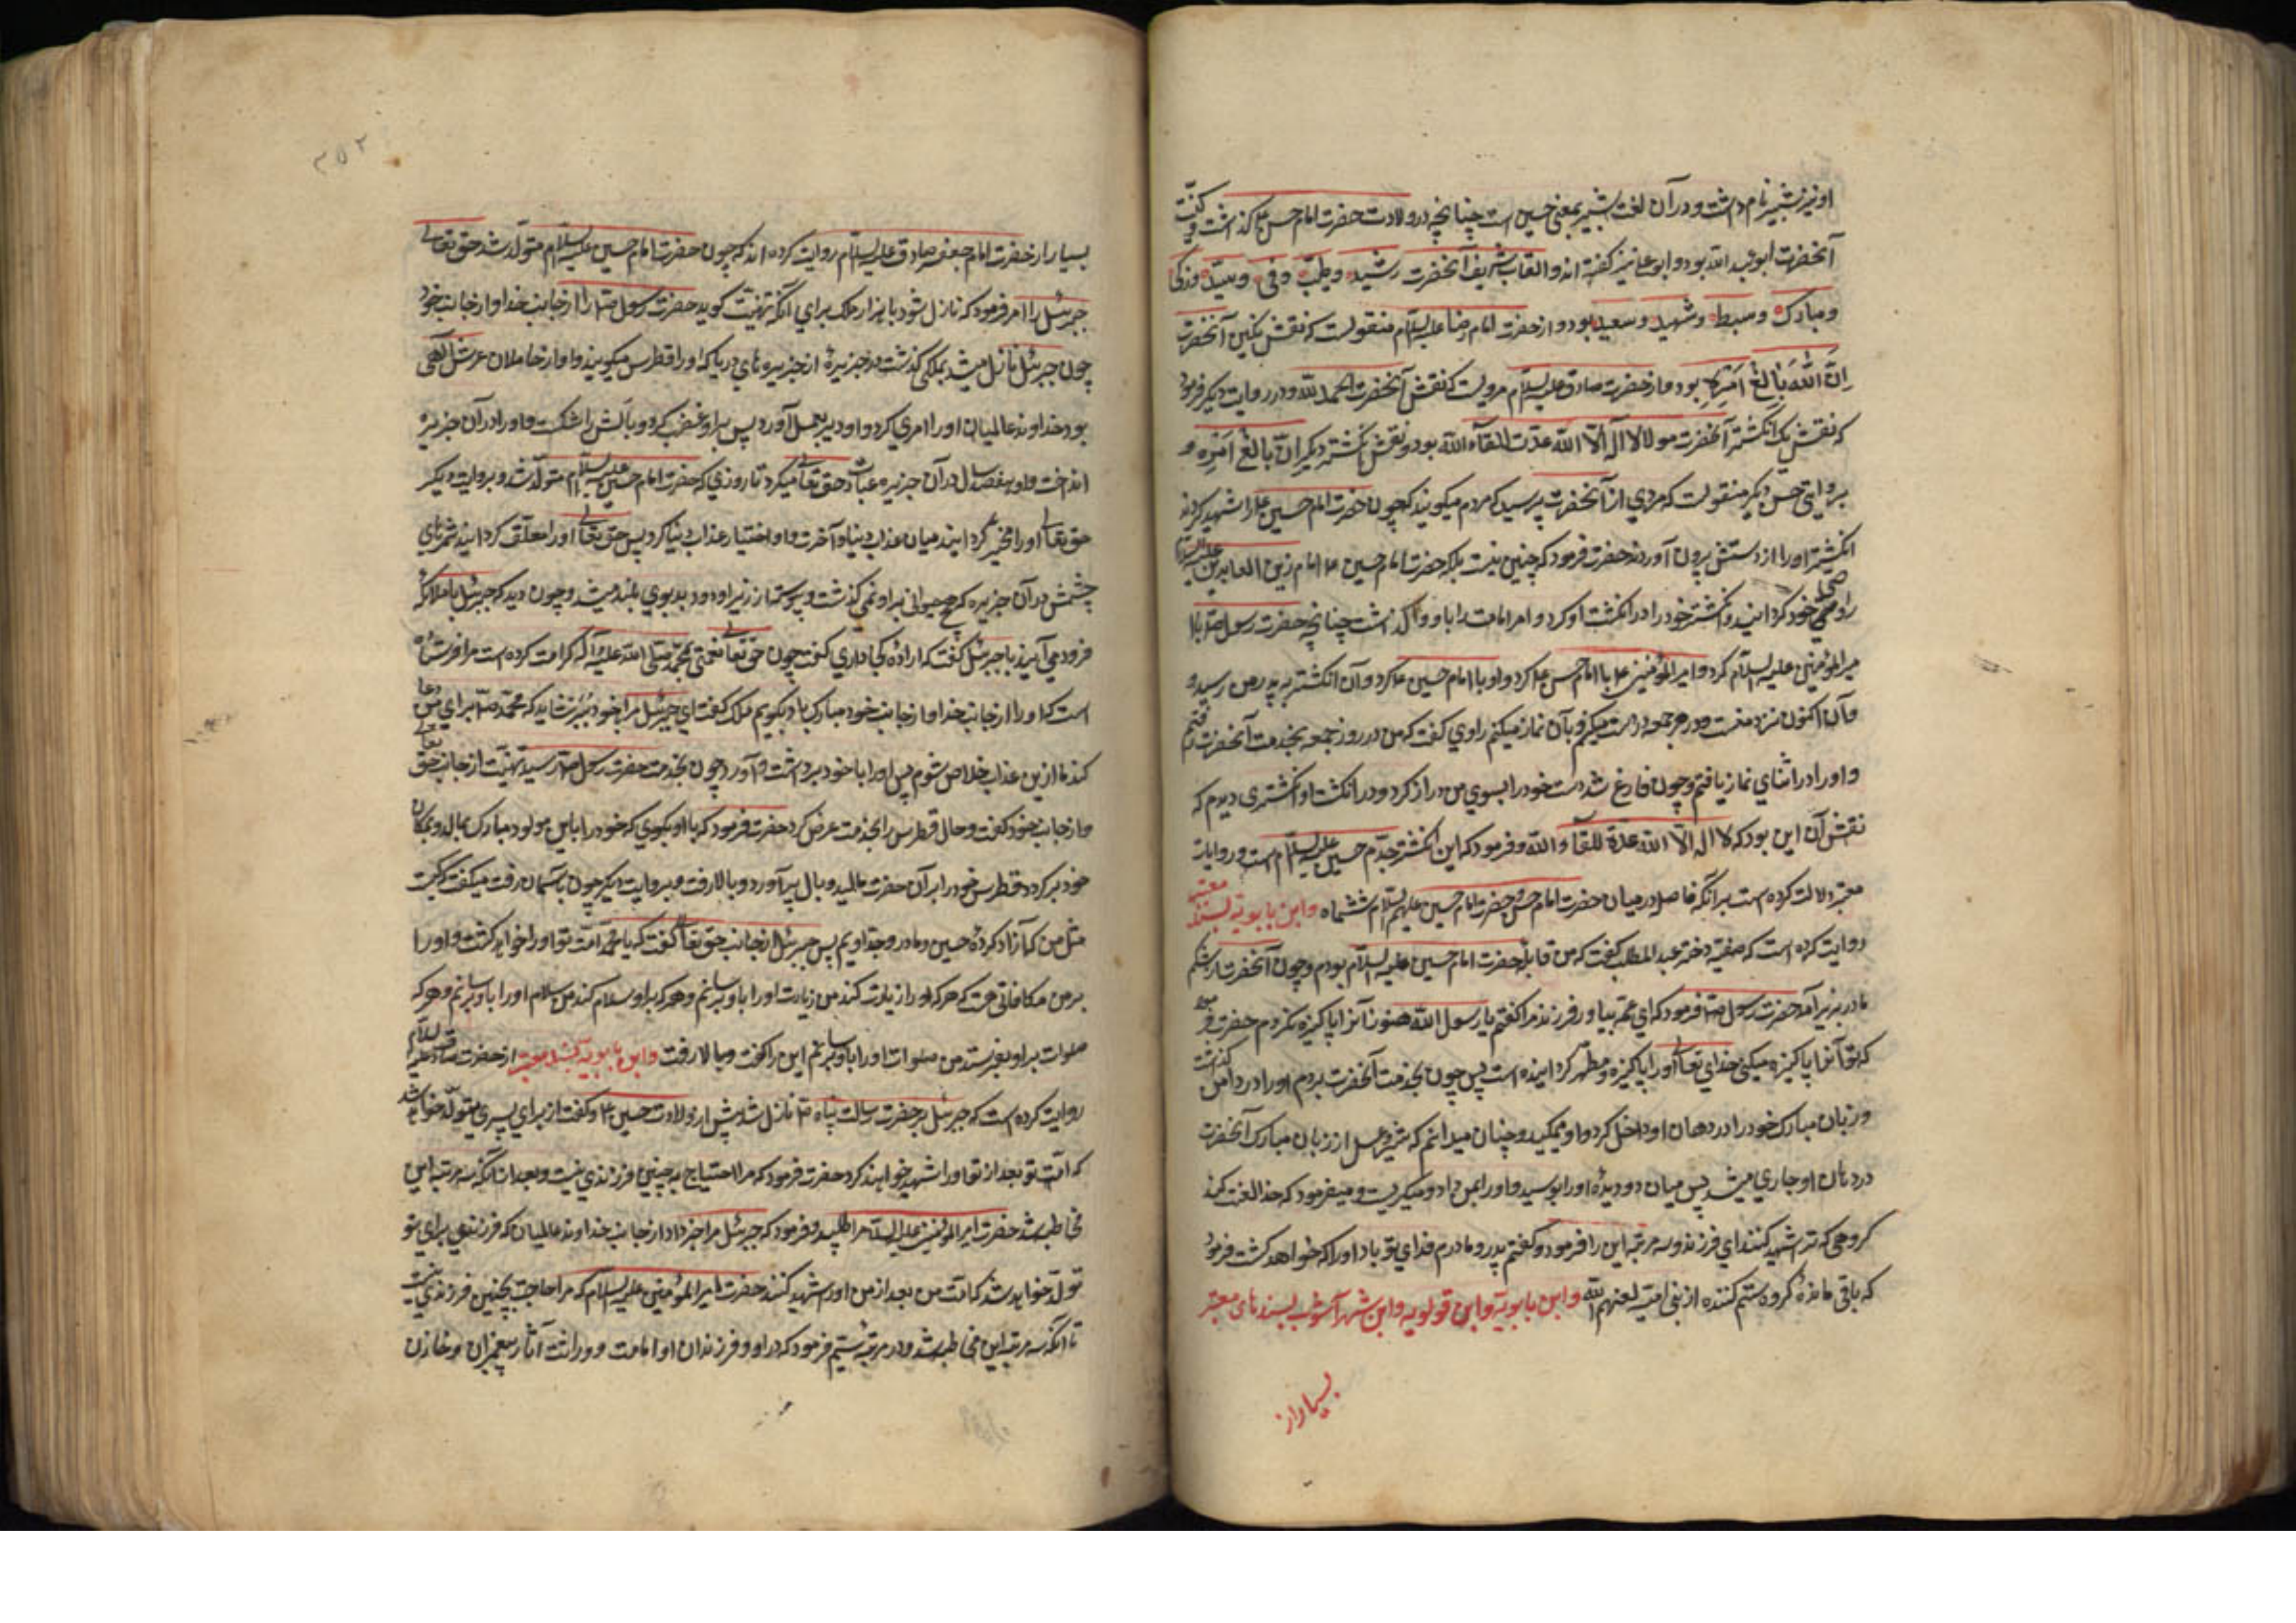 او نیز شبیر نام داشت و در آن لغت شبیر بمعنی حسین است چنانچه در ولادت حضرت امام حسن ع گذشت و کنیت
آنحضرت ابو عبد الله بود و ابو علی نیز گفته اند و القاب شریف آنحضرت رشید و طیب و وفی و سید و زکی
و مبارک و سبط و شهید و سعید بود و از حضرت امام رضا علیه السلام منقولست که نقش نگین آنحضرت
اِنَّ اللهَ بَالِغُ اَمْرِهِ بود و از حضرت صادق علیه السلام مرویست که نقش آنحضرت الحمد لله و در روایت دیگر فرمود
که نقش یک انگشتر آنحضرت مولا لا اله الا الله عدت للقاء الله بود و نقش انگشتر دیگر ان الله بالغ امره و
بروایتی حسن دیگر منقولست که مردی از آنحضرت پرسید که مردم میگویند که چون حضرت امام حسین ع را شهید کردند
انگشتر او را از دستش برون آوردند حضرت فرمود که چنین نیست بلکه حضرت امام حسین ع امام زین العابدین علیه السلام
را وصی خود گردانید و انگشتر خود را در انگشت او کرد و امر امامت را باو وا گذاشت چنانچه حضرت رسول ص با
میر المؤمنین علیه السلام کرد و امیر المؤمنین ع با امام حسن ع کرد و او با امام حسین ع کرد و آن انگشتر به پدر من رسید و
و آن اکنون نزد منست و در هر جمعه در دست میکنم و بآن نماز میکنم راوی گفت که من در روز جمعه بخدمت آنحضرت رفتم
و او را در اثنای نماز یافتم و چون فارغ شد دست خود را بسوی من دراز کرد و در انگشت او انگشتری دیدم که
نقش آن این بود که لا اله الا الله عدة للقاء الله و فرمود که این انگشتر جدم حسین علیه السلام است و روایات
معتبر دلالت کرده است بر آنکه فاصله در میان حضرت امام حسن و حضرت امام حسین علیهم السلام ششماه و ابن بابویه بسند معتبر
روایت کرده است که صفیه دختر عبد المطلب گفت که من قابله حضرت امام حسین علیه السلام بودم و چون آنحضرت از شکم
مادر بزیر آمد حضرت رسول ص فرمود که ای عمه بیاور فرزند مرا گفتم یا رسول الله هنوز آنرا پاکیزه نکردم حضرت فرمود
که تو آنرا پاکیزه میکنی خدای تعالی او را پاکیزه و مطهر گردانیده است پس چون بخدمت آنحضرت بردم او را در دامن گذاشت
و زبان مبارک خود را در دهان او داخل کرد و او میمکید و چنان میدانم که شیر و عسل از زبان مبارک آنحضرت
در دهان او جاری میشد پس میان دو دیده او را بوسید و او را بمن داد و میگریست و میفرمود که خدا لعنت کند
گروهی که ترا شهید کنند ای فرزند و سه مرتبه این را فرمود و گفتم پدر و مادرم فدای تو باد او را که خواهد کشت فرمود
که باقی مانده گروه ستم کننده از بنی امیه لعنهم الله و ابن بابویه و ابن قولویه و ابن شهر آشوب بسندهای معتبر
بسیار از
۳۵۲
بسیار از حضرت امام جعفر صادق علیه السلام روایت کرده اند که چون حضرت امام حسین علیه السلام متولد شد حق تعالی
جبرئیل را امر فرمود که نازل شود با هزار ملک برای آنکه تهنیت گوید حضرت رسول ص را از جانب خدا و از جانب خود
چون جبرئیل نازل میشد بملکی گذشت در جزیرهٔ از جزیره های دریا که او را فطرس میگویند و او از حاملان عرش الهی
بود خداوند عالمیان او را امری کرد و او دیر بعمل آورد پس بر او غضب کرد و بالش را شکست و او را در آن جزیره
انداخت و او هفصد سال در آن جزیره عبادت حق تعالی میکرد تا روزی که حضرت امام حسین علیه السلام متولد شد و بروایت دیگر
حق تعالی او را مخیر گردانید میان عذاب دنیا و آخرت و او اختیار عذاب دنیا کرد پس حق تعالی او را معلق گردانید بمژه های
چشمش در آن جزیره که هیچ حیوانی بر او نمی گذشت و پیوسته از زیر او دود بدبوی بلند میشد و چون دید که جبرئیل با ملائکه
فرود می آیند با جبرئیل گفت که اراده کجا داری گفت چون حق تعالی نعمتی بمحمد صلی الله علیه و آله کرامت کرده است مرا فرستاده
است که او را از جانب خدا و از جانب خود مبارک باد بگویم ملک گفت ای جبرئیل مرا با خود ببر شاید که محمد ص برای من دعا
کند تا ازین عذاب خلاص شوم پس او را با خود برداشت و آورد چون بخدمت حضرت رسول ص رسید تهنیت از جانب حق تعالی
و از جانب خود گفت و حال فطرس را بخدمت عرض کرد حضرت فرمود که با او بگوی که خود را باین مولود مبارک بمالد و بمکان
خود برگردد فطرس خود را بر آن حضرت مالید و بال بر آورد و بالا رفت و بروایت دیگر چون بآسمان رفت میگفت کیست
مثل من که آزاد کردهٔ حسین و مادر و جد اویم پس جبرئیل از جانب حق تعالی گفت که یا محمد امت تو او را خواهد کشت و او را
بر من مکافاتی هست که هر که او را زیارت کند من زیارت او را باو برسانم و هر که بر او سلام کند من سلام او را باو برسانم و هر که
صلوات بر او بفرستد من صلوات او را باو برسانم این را گفت و بالا رفت و ابن بابویه بسند معتبر از حضرت صادق علیه السلام
روایت کرده است که جبرئیل بر حضرت رسالت پناه ص نازل شد پیش از ولادت حسین ع و گفت از برای پسری متولد خواهد شد
که امت تو بعد از تو او را شهید خواهند کرد حضرت فرمود که مرا احتیاج به چنین فرزندی نیست و بعد از آنکه سه مرتبه این
مخاطبه شد حضرت امیر المؤمنین علیه السلام را طلبید و فرمود که جبرئیل مرا خبر داد از جانب خداوند عالمیان که فرزندی برای تو
تولد خواهد شد که امت من بعد از من او را شهید کنند حضرت امیر المؤمنین علیه السلام که مرا حاجت بچنین فرزندی نیست
تا آنکه سه مرتبه این مخاطبه شد و در مرتبه سیم فرمود که در او و فرزندان او امامت و وراثت آثار پیغمبران و خازن